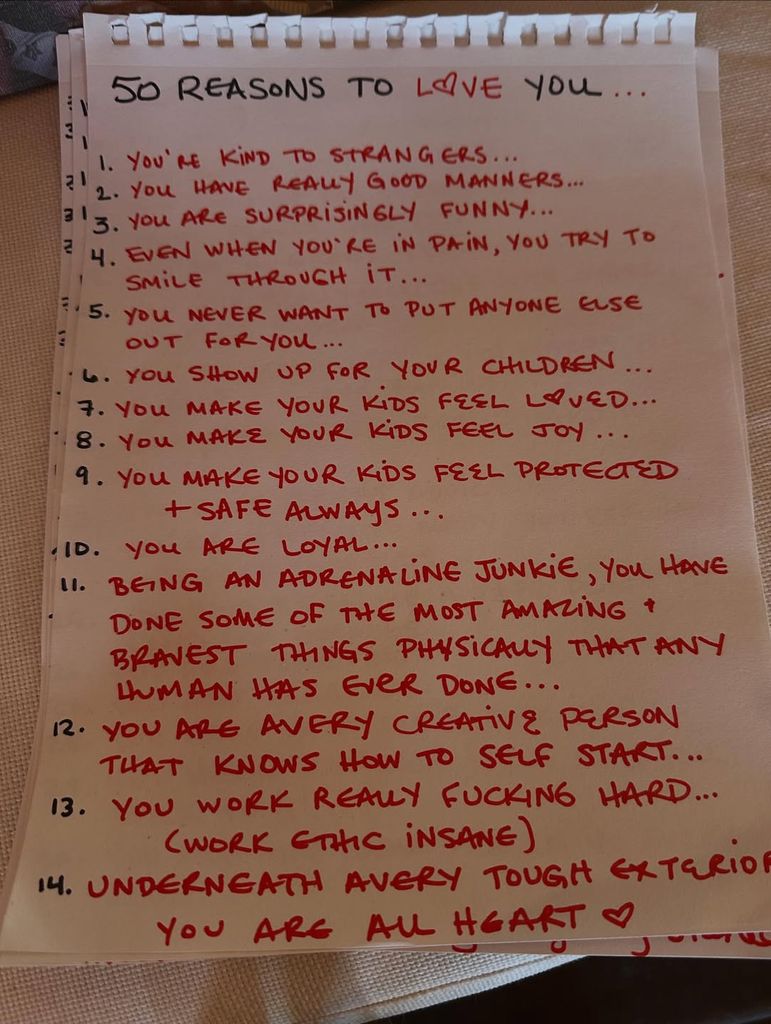 50 REASONS TO LOVE YOU...
1. YOU'RE KIND TO STRANGERS...
2. YOU HAVE REALLY GOOD MANNERS...
3. YOU ARE SURPRISINGLY FUNNY...
4. EVEN WHEN YOU'RE IN PAIN, YOU TRY TO
SMILE THROUGH IT...
5. YOU NEVER WANT TO PUT ANYONE ELSE
OUT FOR YOU...
6. YOU SHOW UP FOR YOUR CHILDREN...
7. YOU MAKE YOUR KIDS FEEL LOVED...
8. YOU MAKE YOUR KIDS FEEL JOY...
9. YOU MAKE YOUR KIDS FEEL PROTECTED
+ SAFE ALWAYS...
10. YOU ARE LOYAL...
11. BEING AN ADRENALINE JUNKIE, YOU HAVE
DONE SOME OF THE MOST AMAZING +
BRAVEST THINGS PHYSICALLY THAT ANY
HUMAN HAS EVER DONE...
12. YOU ARE A VERY CREATIVE PERSON
THAT KNOWS HOW TO SELF START...
13. YOU WORK REALLY FUCKING HARD...
(WORK ETHIC INSANE)
14. UNDERNEATH A VERY TOUGH EXTERIOR
YOU ARE ALL HEART ♡